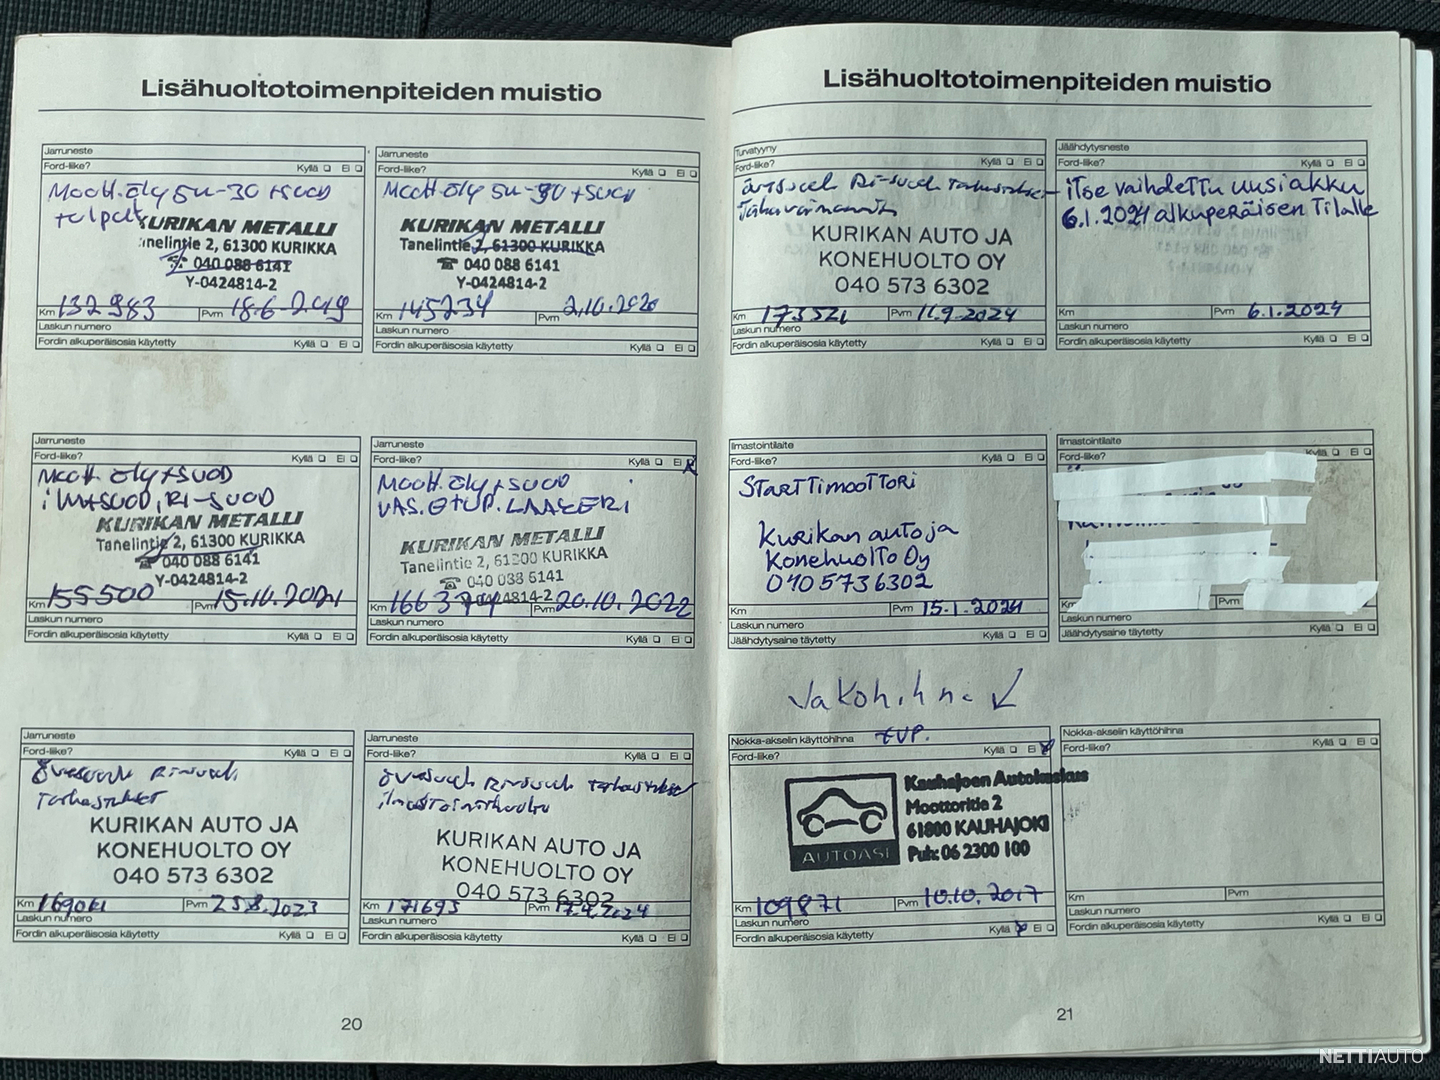 Lisähuoltotoimenpiteiden muistio
Jarruneste
Ford-like? Kyllä Ei
Moott. öly 5w-30 + suod
tulpat
KURIKAN METALLI
Tanelintie 2, 61300 KURIKKA
040 088 6141
Y-0424814-2
Km 132983 Pvm 18.6-2019
Laskun numero
Fordin alkuperäisosia käytetty Kyllä Ei
Jarruneste
Ford-like? Kyllä Ei
Moott. öly 5w-30 + suod
KURIKAN METALLI
Tanelintie 2, 61300 KURIKKA
040 088 6141
Y-0424814-2
Km 145234 Pvm 2.10.2020
Laskun numero
Fordin alkuperäisosia käytetty Kyllä Ei
Jarruneste
Ford-like? Kyllä Ei
Moott. öly + SUOD
ilm+SUOD, RI-SUOD
KURIKAN METALLI
Tanelintie 2, 61300 KURIKKA
040 088 6141
Y-0424814-2
Km 155500 Pvm 15.10.2021
Laskun numero
Fordin alkuperäisosia käytetty Kyllä Ei
Jarruneste
Ford-like? Kyllä Ei
Moott. öly + SUOD
VAS. ETUP. LAAKERI
KURIKAN METALLI
Tanelintie 2, 61300 KURIKKA
040 088 6141
Km Pvm 20.10.2022
Laskun numero
Fordin alkuperäisosia käytetty Kyllä Ei
Jarruneste
Ford-like? Kyllä Ei
Ri-suod.
Tarkastukset
KURIKAN AUTO JA
KONEHUOLTO OY
040 573 6302
Km 169061 Pvm 25.8.2023
Laskun numero
Fordin alkuperäisosia käytetty Kyllä Ei
Jarruneste
Ford-like? Kyllä Ei
Ri-suod. tarkastukset
KURIKAN AUTO JA
KONEHUOLTO OY
040 573 6302
Km 171695 Pvm 17.4.2024
Laskun numero
Fordin alkuperäisosia käytetty Kyllä Ei
20
Lisähuoltotoimenpiteiden muistio
Turvatyyny
Ford-like? Kyllä Ei
Ri-suod. tarkastukset
KURIKAN AUTO JA
KONEHUOLTO OY
040 573 6302
Km Pvm 11.9.2024
Laskun numero
Fordin alkuperäisosia käytetty Kyllä Ei
Jäähdytysneste
Ford-like? Kyllä Ei
iTse vaihdettu uusi akku
6.1.2024 alkuperäisen Tilalle
Km Pvm 6.1.2024
Laskun numero
Fordin alkuperäisosia käytetty Kyllä Ei
Ilmastointilaite
Ford-like? Kyllä Ei
STarTTimooTTori
Kurikan auto ja
KonehuolTo Oy
040 5736302
Km Pvm 15.1.2024
Laskun numero
Jäähdytysaine täytetty Kyllä Ei
Ilmastointilaite
Ford-like? Kyllä Ei
Km Pvm
Laskun numero
Jäähdytysaine täytetty Kyllä Ei
Jakohihna
Nokka-akselin käyttöhihna
Ford-like? Kyllä Ei
AUTOASI
Kauhajoen Autokeskus
Moottoritie 2
61800 KAUHAJOKI
Puh: 06 2300 100
Km 109871 Pvm 10.10.2017
Laskun numero
Fordin alkuperäisosia käytetty Kyllä Ei
Nokka-akselin käyttöhihna
Ford-like? Kyllä Ei
Km Pvm
Laskun numero
Fordin alkuperäisosia käytetty Kyllä Ei
21
NETTIAUTO